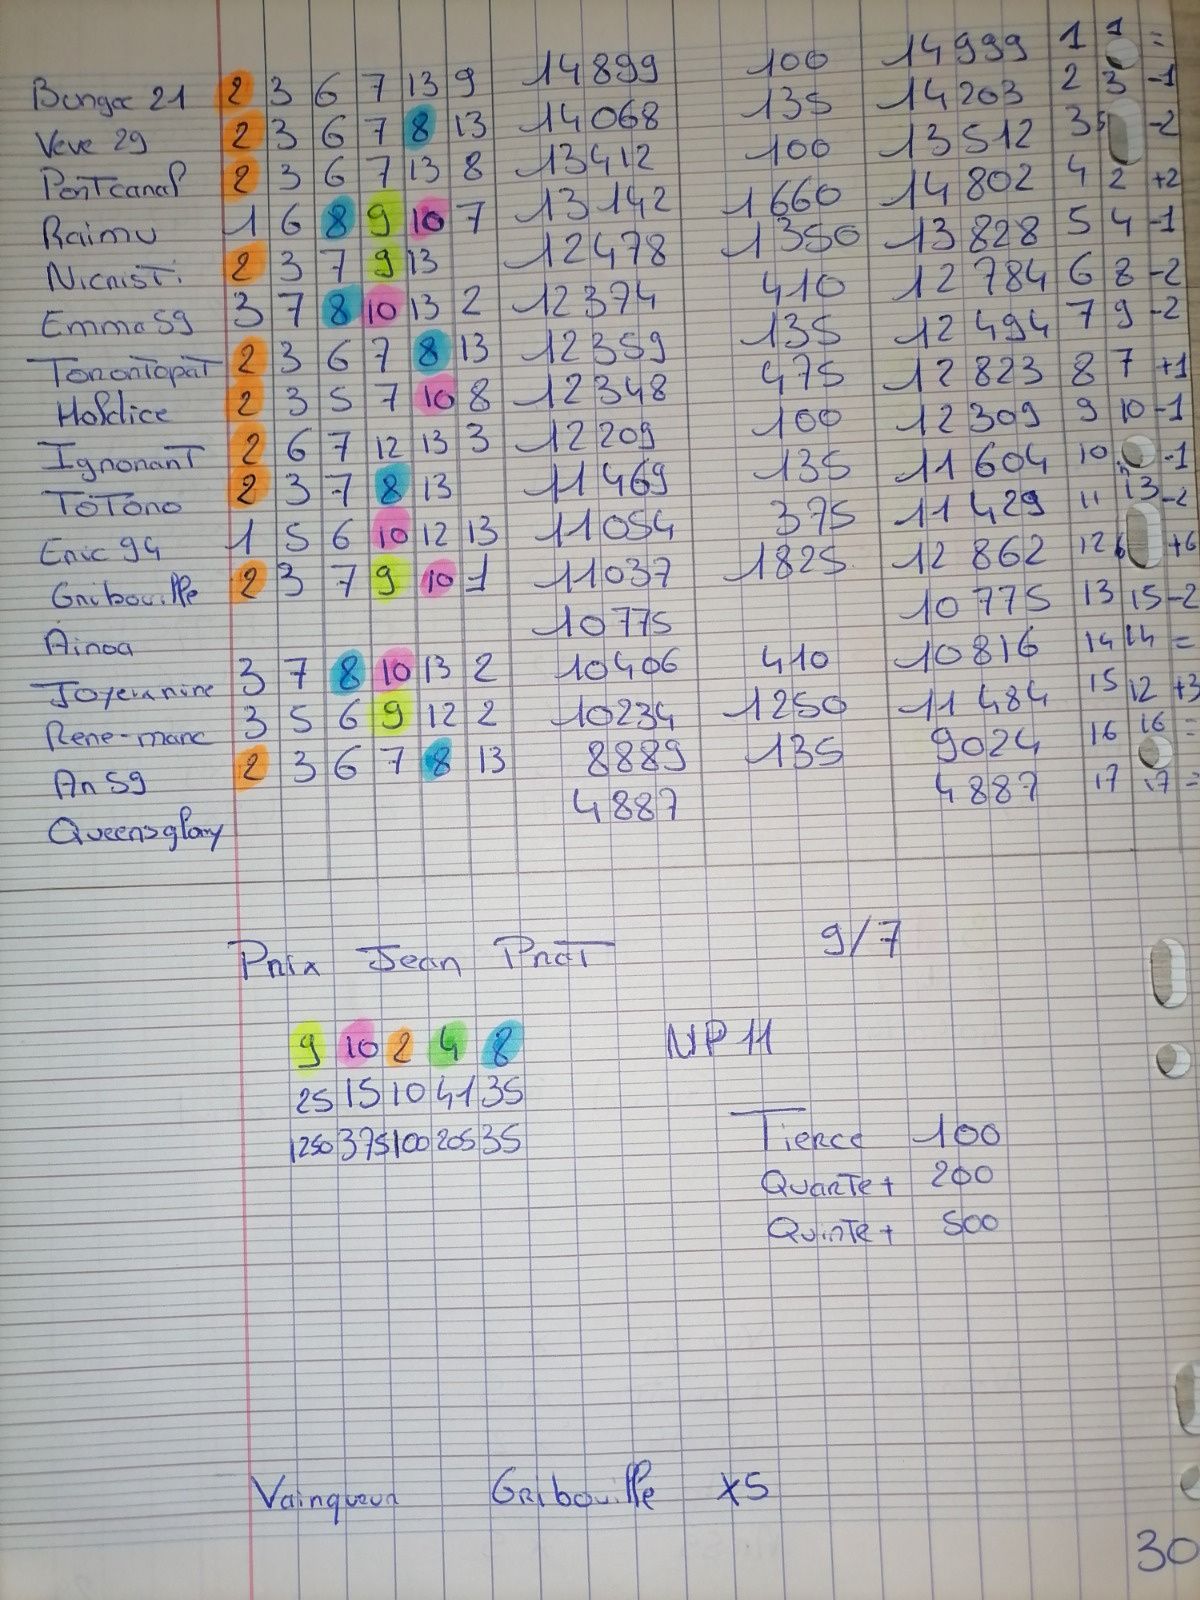 Bungee 21 2 3 6 7 13 9 14899 100 14999 1 1 =
Veve 29 2 3 6 7 8 13 14068 135 14203 2 3 -1
Pontcanal 2 3 6 7 13 8 13412 100 13512 3 5 -2
Raimu 1 6 8 9 10 7 13142 1660 14802 4 2 +2
Nicnisti 2 3 7 9 13 12478 1350 13828 5 4 -1
Emma59 3 7 8 10 13 2 12374 410 12784 6 8 -2
Torontopat 2 3 6 7 8 13 12359 135 12494 7 9 -2
Holdice 2 3 5 7 10 8 12348 475 12823 8 7 +1
Ignorant 2 6 7 12 13 3 12209 100 12309 9 10 -1
Totono 2 3 7 8 13 11469 135 11604 10 -1
Eric 94 1 5 6 10 12 13 11054 375 11429 11 13 -2
Gribouille 2 3 7 9 10 1 11037 1825 12862 12 6 +6
Ainoa 10775 10775 13 15 -2
3 7 8 10 13 2 10406 410 10816 14 14 =
Rene-marc 3 5 6 9 12 2 10234 1250 11484 15 12 +3
An59 2 3 6 7 8 13 8889 135 9024 16 16 =
Queensglory 4887 4887 17 17 =
Prix Jean Prat 9/7
9 10 2 4 8 NP 11
25 15 10 41 35
1250 375 100 205 35
Tierce 100
Quarte+ 200
Quinte+ 500
Vainqueur Gribouille x5
30